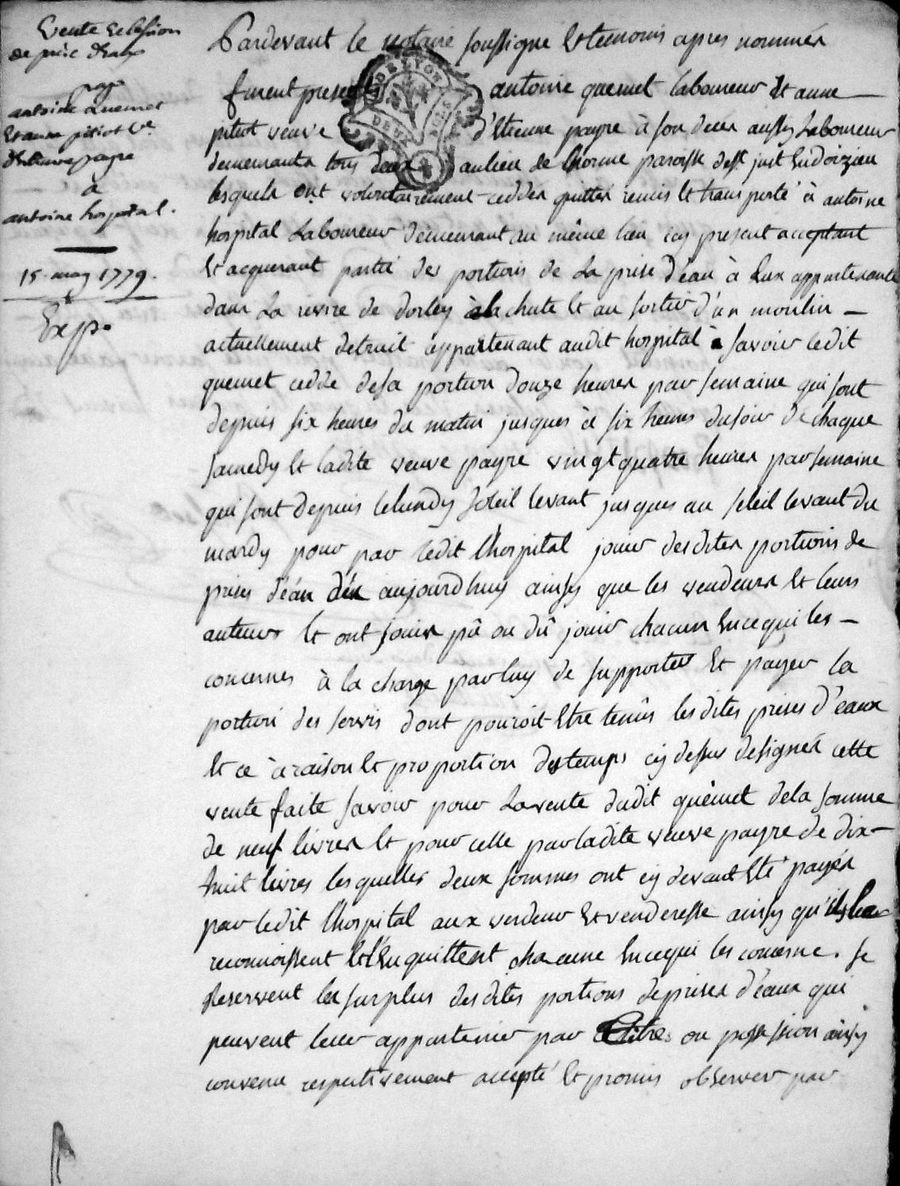 Vente et cession
de prise d'eau
par
antoine quemet
et anne pitiot ve
d'etienne payre
à
antoine hospital.
15 may 1779.
Exp.
Pardevant le notaire soussigné et temoins apres nommés
furent presents antoine quemet laboureur et anne
pitiot veuve d'Etienne payre à son deces aussy Laboureur
demeurants tous deux au lieu de lhorme paroisse de st just en doizieu
lesquels ont volontairement cedder quitter remis et transporté à antoine
hospital Laboureur demeurant au même lieu icy present acceptant
et acquerant partie des portions de La prise d'eau à Eux appartenante
dans La riviere de dorley à la chute et au sortir d'un moulin
actuellement detruit appartenant audit hospital savoir ledit
quemet cedde de sa portion douze heures par semaine qui sont
depuis six heures du matin jusques à six heures du soir de chaque
samedy et ladite veuve payre vingt quatre heures par semaine
qui sont depuis le lundy soleil levant jusques au soleil levant du
mardy pour par ledit lhospital jouir desdites portions de
prises d'éau dés aujourdhuy ainsy que les vendeurs et leurs
auteurs et ont jouis pû ou dû jouir chacun en ce qui les
concernes à la charge par luy de supporter et payer la
portion des servis dont pouroit etre tenûs lesdites prises d'eaux
et ce à raison et proportion des temps cy dessus designés cette
vente faite savoir pour la vente dudit quémet de la somme
de neuf livres et pour celle par ladite veuve payre de dix
huit livres lesquelles deux sommes ont cy devant eté payés
par ledit lhospital aux vendeur et venderesse ainsy qu'ils le
reconnoissent et l'en quittent chacune en ce qui les concerne. se
Reservent le surplus desdites portions de prises d'éaux qui
peuvent leur appartenir par titres ou possession ainsy
convenu respectivement accepté et promis observer par